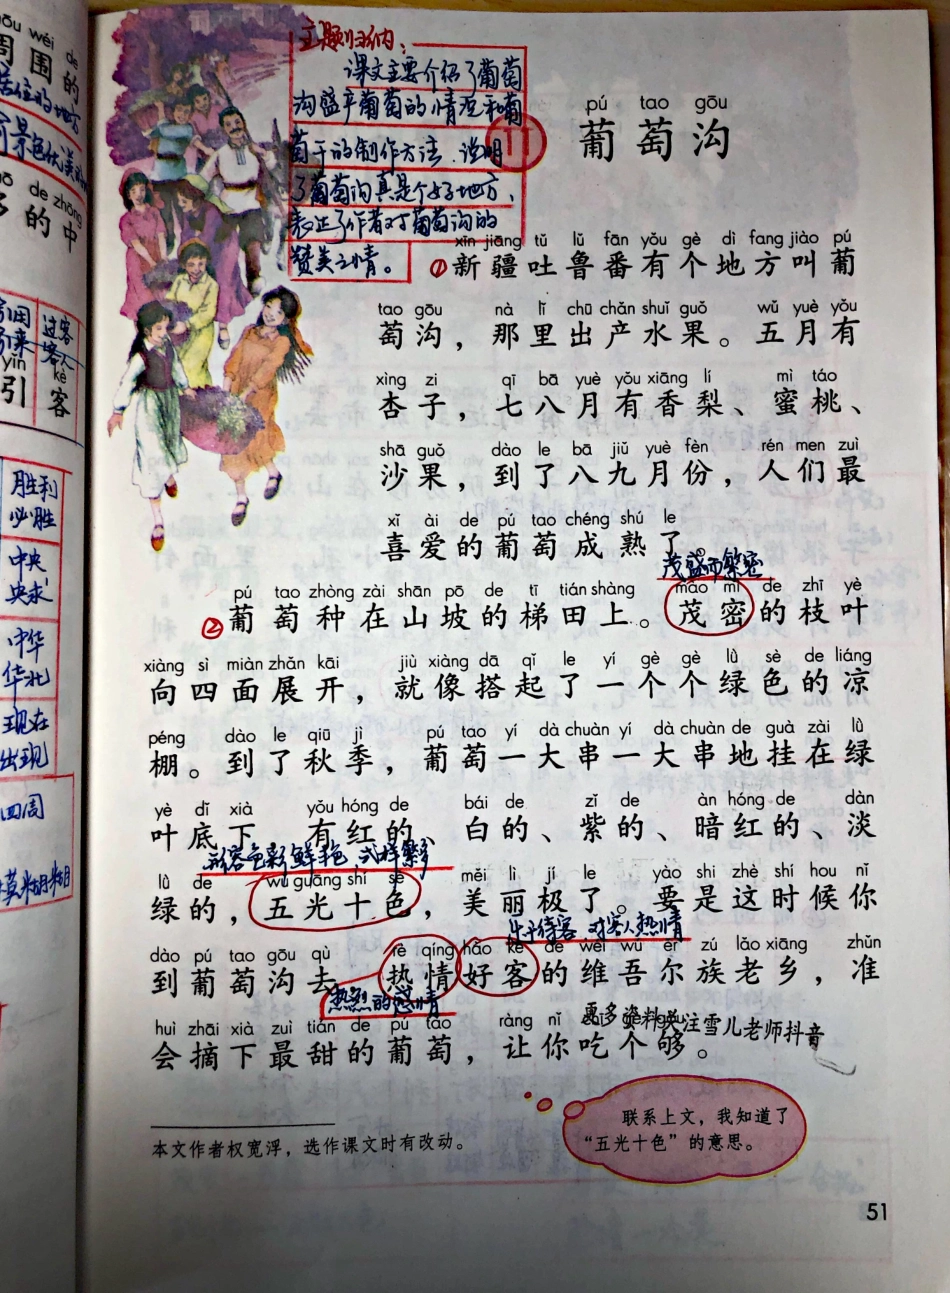 主题归纳：
课文主要介绍了葡萄
沟盛产葡萄的情况和葡
萄干的制作方法，说明
了葡萄沟真是个好地方，
表达了作者对葡萄沟的
赞美之情。
pú tao gōu
11 葡萄沟
xīn jiāng tǔ lǔ fān yǒu gè dì fang jiào pú
①新疆吐鲁番有个地方叫葡
tao gōu nà lǐ chū chǎn shuǐ guǒ wǔ yuè yǒu
萄沟，那里出产水果。五月有
xìng zi qī bā yuè yǒu xiāng lí mì táo
杏子，七八月有香梨、蜜桃、
shā guǒ dào le bā jiǔ yuè fèn rén men zuì
沙果，到了八九月份，人们最
xǐ ài de pú tao chéng shú le
喜爱的葡萄成熟了。
茂盛而繁密
pú tao zhòng zài shān pō de tī tián shàng mào mì de zhī yè
②葡萄种在山坡的梯田上。茂密的枝叶
xiàng sì miàn zhǎn kāi jiù xiàng dā qǐ le yí gè gè lǜ sè de liáng
向四面展开，就像搭起了一个个绿色的凉
péng dào le qiū jì pú tao yí dà chuàn yí dà chuàn de guà zài lǜ
棚。到了秋季，葡萄一大串一大串地挂在绿
yè dǐ xià yǒu hóng de bái de zǐ de àn hóng de dàn
叶底下，有红的、白的、紫的、暗红的、淡
形容色彩鲜艳，式样繁多
lǜ de wǔ guāng shí sè měi lì jí le yào shi zhè shí hou nǐ
绿的，五光十色，美丽极了。要是这时候你
乐于待客，对客人热情
dào pú tao gōu qù rè qíng hào kè de wéi wú ěr zú lǎo xiāng zhǔn
到葡萄沟去，热情好客的维吾尔族老乡，准
热烈的感情
huì zhāi xià zuì tián de pú tao ràng nǐ
会摘下最甜的葡萄，让你吃个够。
更多资料关注雪儿老师抖音
联系上文，我知道了
“五光十色”的意思。
本文作者权宽浮，选作课文时有改动。
51
wéi de
周围的
居住的地方
de zhōng
的中
yǐn kè
引 客
过客
客人
胜利
必胜
中央
央求
中华
华北
现在
出现
四周